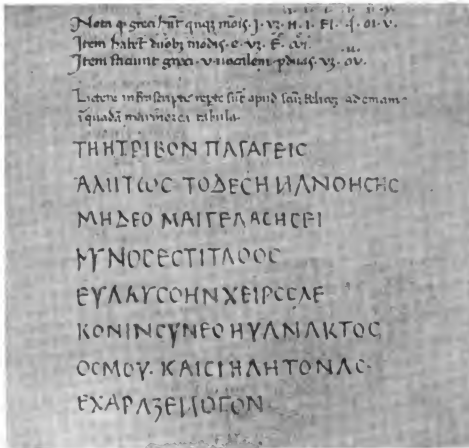 Nota q̄ greci hn̄t qnqȝ mōis. J. vȝ. H. I. EI. OI. V.
Item habet duobȝ modis. e. vȝ. E. αι.
Item faciunt greci. v. uocalem p duas. vȝ. ov.
Lictere infrascripte repte sūt apud scm̄ felicē ad emam
ī quadā marmorea tabula.
ΤΗΗΤΡΙΒΟΝ ΠΑΓΑΓΕΙC
ΑΛΙΙΤωC ΤΟΔΕCΗ ΙΛΝΟΗCΗC
ΜΗΔΕΟ ΜΑΙΓΕΛΑCΗCΕΙ
ΜΥΝΟCΕCΤΙΤΛΟΟC
ΕΥΛΑΥCΟΗΝΧΕΙΡCCΛΕ
ΚΟΝΙΝCΥΝΕΟΗΥΛΝΛΚΤΟC
ΟCΜΟΥ. ΚΑΙCΙΗΛΗΤΟΝΛC.
ΕΧΑΡΑΖΕΙΙΟΓΟΝ